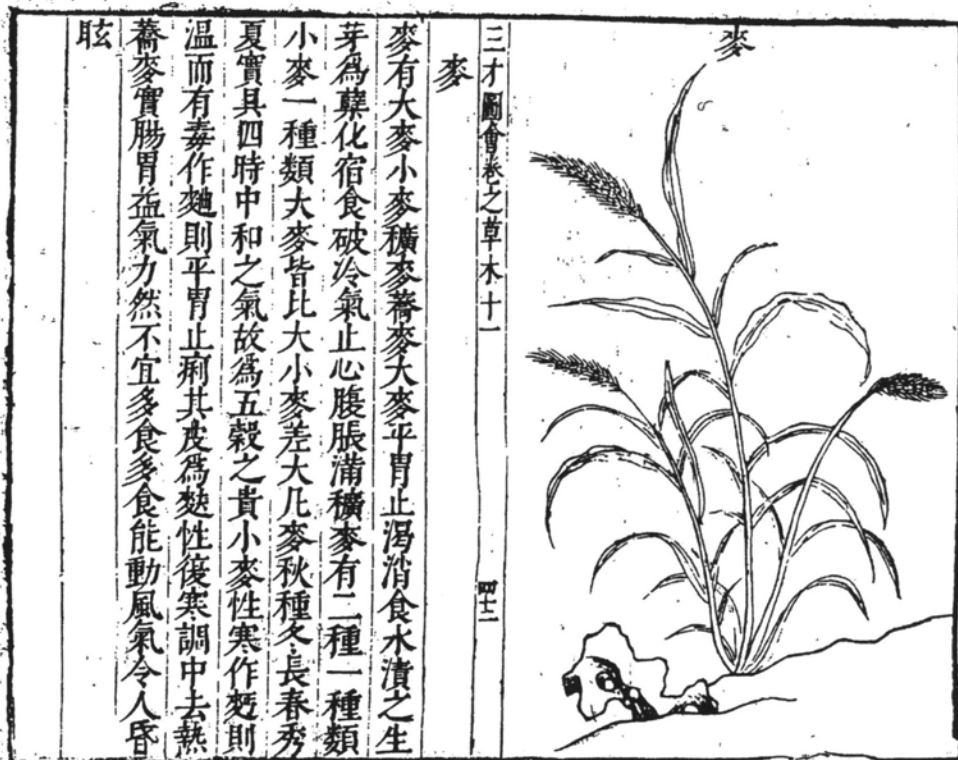 麥
三才圖會卷之草木十一
四十二
麥
麥有大麥小麥穬麥蕎麥大麥平胃止渴消食水漬之生
芽爲蘖化宿食破冷氣止心腹脹滿穬麥有二種一種類
小麥一種類大麥皆比大小麥差大凡麥秋種冬長春秀
夏實具四時中和之氣故爲五穀之貴小麥性寒作麪則
温而有毒作麯則平胃止痢其皮爲麩性復寒調中去熱
蕎麥實腸胃益氣力然不宜多食多食能動風氣令人昏
眩